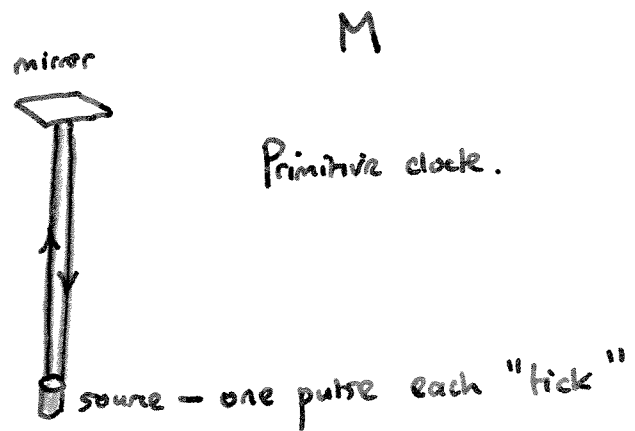 M
mirror
Primitive clock.
source - one pulse each "tick"